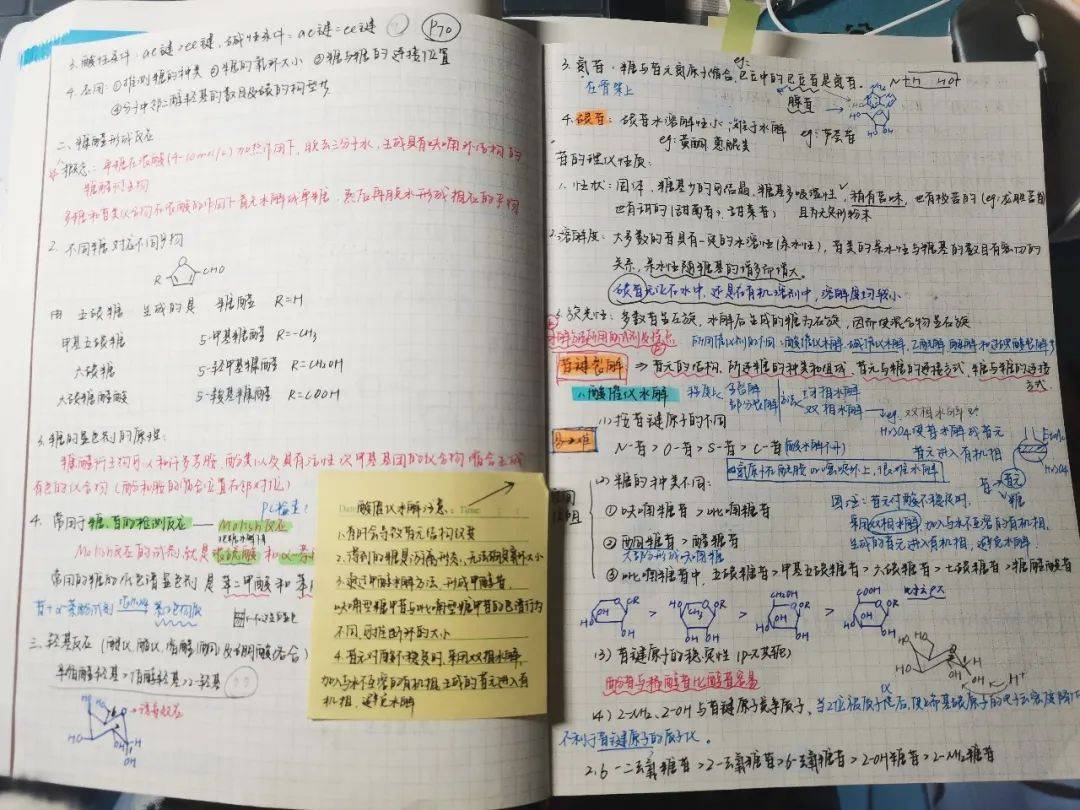 P70
3. 酸性条件: ae键>ee键, 碱性条件: ae键=ee键
4. 应用: ①推测糖的种类 ②糖的氧环大小 ③糖与糖的连接位置
④分子中邻二醇羟基的数目及碳的构型等
二、糠醛形成反应
1. 概念: 单糖在浓酸(4-10mol/L)加热作用下, 脱去三分子水, 生成具有呋喃环结构的
糠醛衍生物
多糖和苷类化合物在浓酸的作用下首先水解成单糖, 然后再脱水形成相应的产物
2. 不同糖对应不同产物
R CHO
由 五碳糖 生成的是 糠醛 R=H
甲基五碳糖 5-甲基糠醛 R=-CH3
六碳糖 5-羟甲基糠醛 R=CH2OH
六碳糖醛酸 5-羧基糠醛 R=COOH
3. 糖的显色剂的原理:
糠醛衍生物可以和许多芳胺, 酚类以及具有活性次甲基基团的化合物缩合生成
有色的化合物 (酚和胺的缩合位置在邻对位)
4. 常用于糖、苷的检测反应 —— Molish反应
Molish反应的试剂就是浓硫酸和α-萘
常用的糖的 色谱显色剂是 邻苯二甲酸和苯
苷+α-萘酚试剂
三、羟基反应 (醚化, 酰化, 缩醛(酮)及硼酸络合)
半缩醛羟基>伯醇羟基>2-羟基
酸催化水解注意:
1. 有时会导致苷元结构改变
2. 得到的糖是游离糖类, 无法确定氧环大小
3. 通过甲醇水解方法, 形成甲醇苷,
呋喃型糖甲苷与吡喃型糖甲苷的色谱行为
不同, 可推断环的大小
4. 苷元对酸不稳定时, 采用双相水解,
加入与水不互溶的有机相, 生成的苷元进入有
机相, 避免水解
3. 氮苷: 糖与苷元氮原子缩合, 巴豆中的巴豆苷是氮苷.
eg:
腺苷
4. 碳苷: 碳苷水溶解性小, 难于水解 eg: 芦荟苷
eg: 黄酮, 蒽醌类
苷的理化性质:
1. 性状: 固体, 糖基少的可结晶, 糖基多吸湿性, 稍有苦味, 也有极苦的(eg: 龙胆苦苷)
也有甜的(甜菊苷), 且为无定形粉末
2. 溶解度: 大多数的苷具有一定的水溶性(亲水性), 苷类的亲水性与糖基的数目有密切的
关系, 亲水性随糖基的增多而增大.
碳苷无论在水中, 还是在有机溶剂中, 溶解度均较小
3. 旋光性: 多数苷呈左旋, 水解后生成的糖为右旋, 因而使混合物呈右旋
所用催化剂的不同: 酸催化水解, 碱催化水解, 乙酰解, 酶解和过碘酸裂解
苷键裂解 ⇒ 苷元的结构, 所连糖的种类和组成, 苷元与糖的连接方式, 糖与糖的连接
方式.
1. 酸催化水解 程度 全水解 部分水解 方法 单相水解 双相水解
eg. 双相水解: 用
H2SO4使苷水解成苷元
苷元进入有机相
(1) 按苷键原子的不同
易→难 N-苷>O-苷>S-苷>C-苷 (酸水解)
N氮原子在酰胺or嘧啶环上, 很难水解
(2) 糖的种类不同:
①呋喃糖苷>吡喃糖苷
②酮糖苷>醛糖苷
大部分形成呋喃糖
注: 苷元对酸不稳定时,
采用双相水解 加入与水不互溶的有机相,
生成的苷元进入有机相, 避免水解.
③吡喃糖苷中, 五碳糖苷>甲基五碳糖苷>六碳糖苷>七碳糖苷>糖醛酸苷
(3) 苷键原子的稳定性 (p-π共轭)
酚苷与烯醇苷比醇苷易
(4) 2-NH2、2-OH与苷键原子竞争质子,
不利于苷键原子的质子化.
2,6-二去氧糖苷>2-去氧糖苷>6-去氧糖苷>2-OH糖苷>2-NH2糖苷